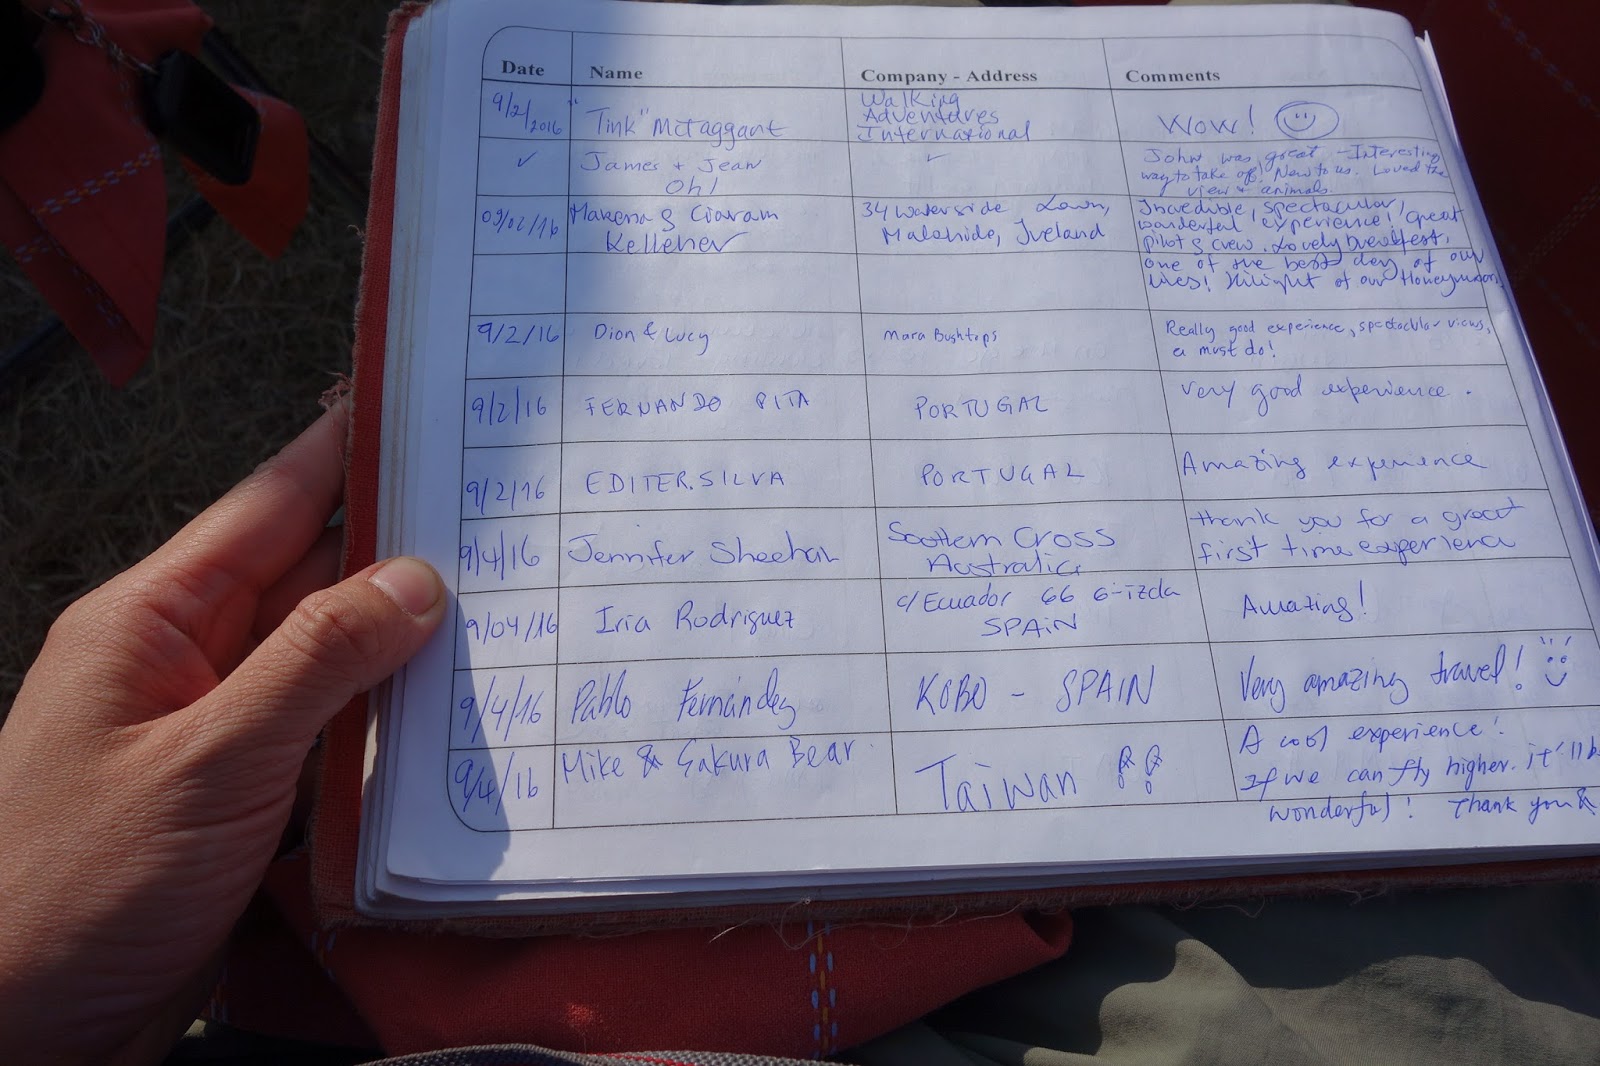 Date Name Company - Address Comments
9/2/2016 "Tink" McTaggant Walking
Adventures
International WOW!
✓ James + Jean
Oh! ✓ John was great - Interesting
way to take off! New to us. Loved the
view + animals.
09/02/16 Makena & Ciaram
Kelleher 34 Waterside Lawn,
Malahide, Ireland Incredible, spectacular,
wonderful experience! Great
pilot & crew. Lovely breakfast.
One of the best day of our
lives! Hilight of our Honeymoon.
9/2/16 Dion & Lucy Mara Bushtops Really good experience, spectacular views,
a must do!
9/2/16 FERNANDO PITA PORTUGAL Very good experience.
9/2/16 EDITER.SILVA PORTUGAL Amazing experience
9/4/16 Jennifer Sheehan Southern Cross
Australia thank you for a great
first time experience
9/04/16 Iria Rodriguez c/Ecuador 66 6-izda
SPAIN Amazing!
9/4/16 Pablo Fernández KOBO - SPAIN Very amazing travel!
9/4/16 Mike & Sakura Bear Taiwan !! A cool experience!
If we can fly higher. it'll b
wonderful! Thank you &